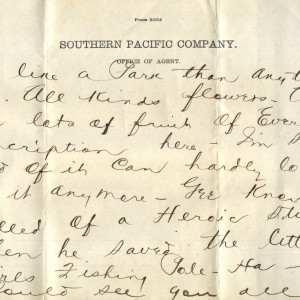 Form 2324
SOUTHERN PACIFIC COMPANY.
OFFICE OF AGENT.
like a Park than any
All Kinds flowers-
lots of fruit Of Ever
cription here- I'm S
d Of it Can hardly lo
it anymore- Gee Know
lled Of a Heroic
en he saved the litt
ls Fishing Pole- Ha-
ould see you all